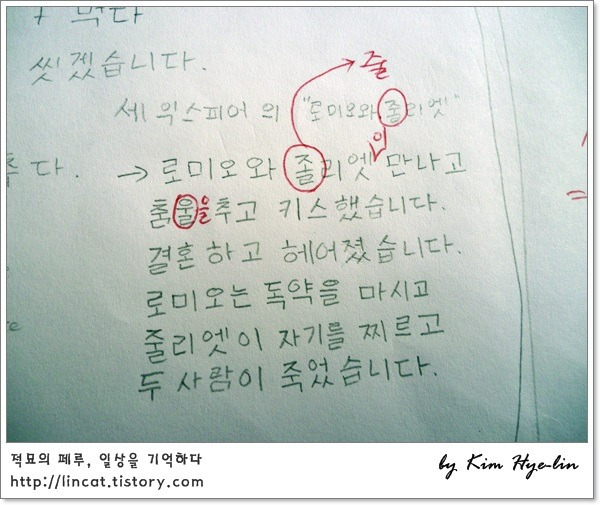 씻겠습니다.
줄
세 익스피어 의 "로미오와 졸리엣"
이
다. → 로미오와 졸리엣 만나고
춤울을추고 키스했습니다.
결혼하고 헤어졌습니다.
로미오는 독약을 마시고
줄리엣이 자기를 찌르고
두 사람이 죽었습니다.
적묘의 페루, 일상을 기억하다
http://lincat.tistory.com
by Kim Hye-lin